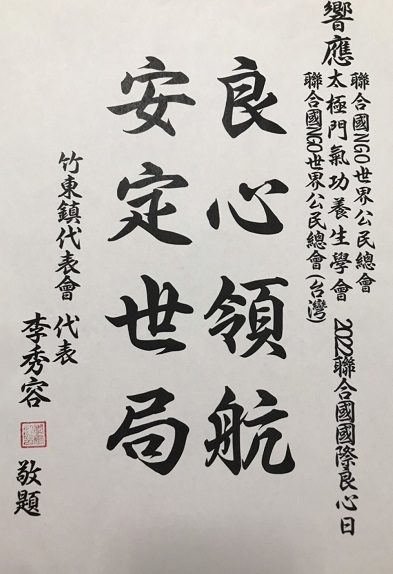 響應
聯合國NGO世界公民總會
太極門氣功養生學會
聯合國NGO世界公民總會(台灣)
2022聯合國國際良心日
良心領航
安定世局
竹東鎮代表會 代表
李秀容 敬題